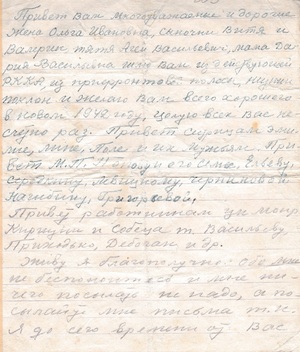 Привет Вам многоуважаемые и дорогие
жена Ольга Ивановна, сыночки Витя и
Валерик тятя Агей Васильевич, мама Да
рия Васильевна шлю Вам из действующей
РККА из прифронтовой полосы, низкий
поклон и желаю Вам всего хорошего
в новом 1942 году, целую всех Вас не
счетно раз. Привет сестрицам
Поле и их мужьям. При
вет М.П.
Левицкому, Цертиновой
Григоровой,
Привет работникам
Кирнуви и Собеца т. Васильеву
Приходько, Дебочан и др.
Живу я благополучно. Обо мне
не беспокойтесь и мне ни-
чего посылать не надо, а по
сылайте мне письма т.к.
Я до сего времени от Вас